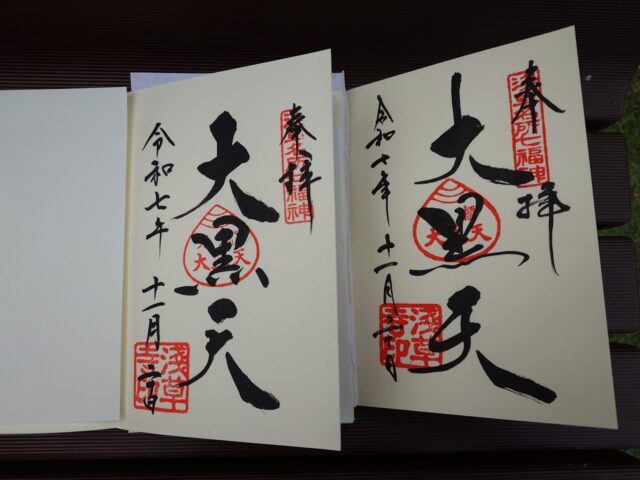 奉拝
浅草名所七福神
大黒天
大黒天
令和七年 十一月二十日
淺草寺印
奉拝
浅草名所七福神
大黒天
大天
令和七年 十一月二十日
淺草寺印